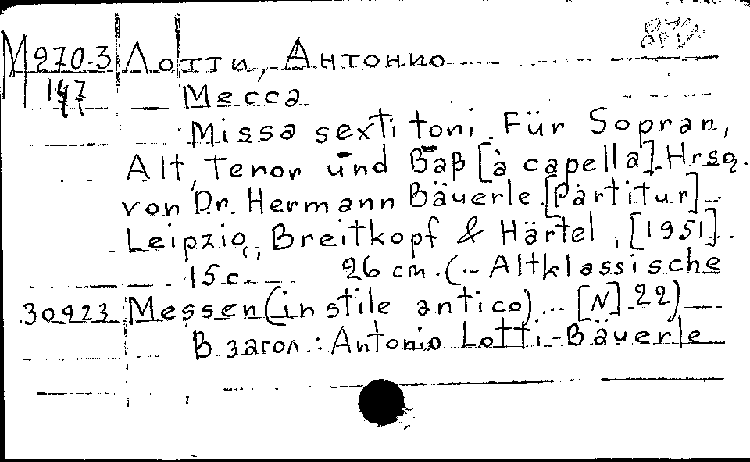 М 270-3 Лотти, Антонио
147 Месса
Missa sexti toni. Für Sopran,
Alt, Tenor und Baß [à capella]. Hrsg.
von Dr. Hermann Bäuerle. [Partitur].
Leipzig, Breitkopf & Härtel, [1951].
15 с. 26 cm. (Altklassische
30923 Messen (in stile antico) ... [N] 22)
В загол.: Antonio Lotti-Bäuerle